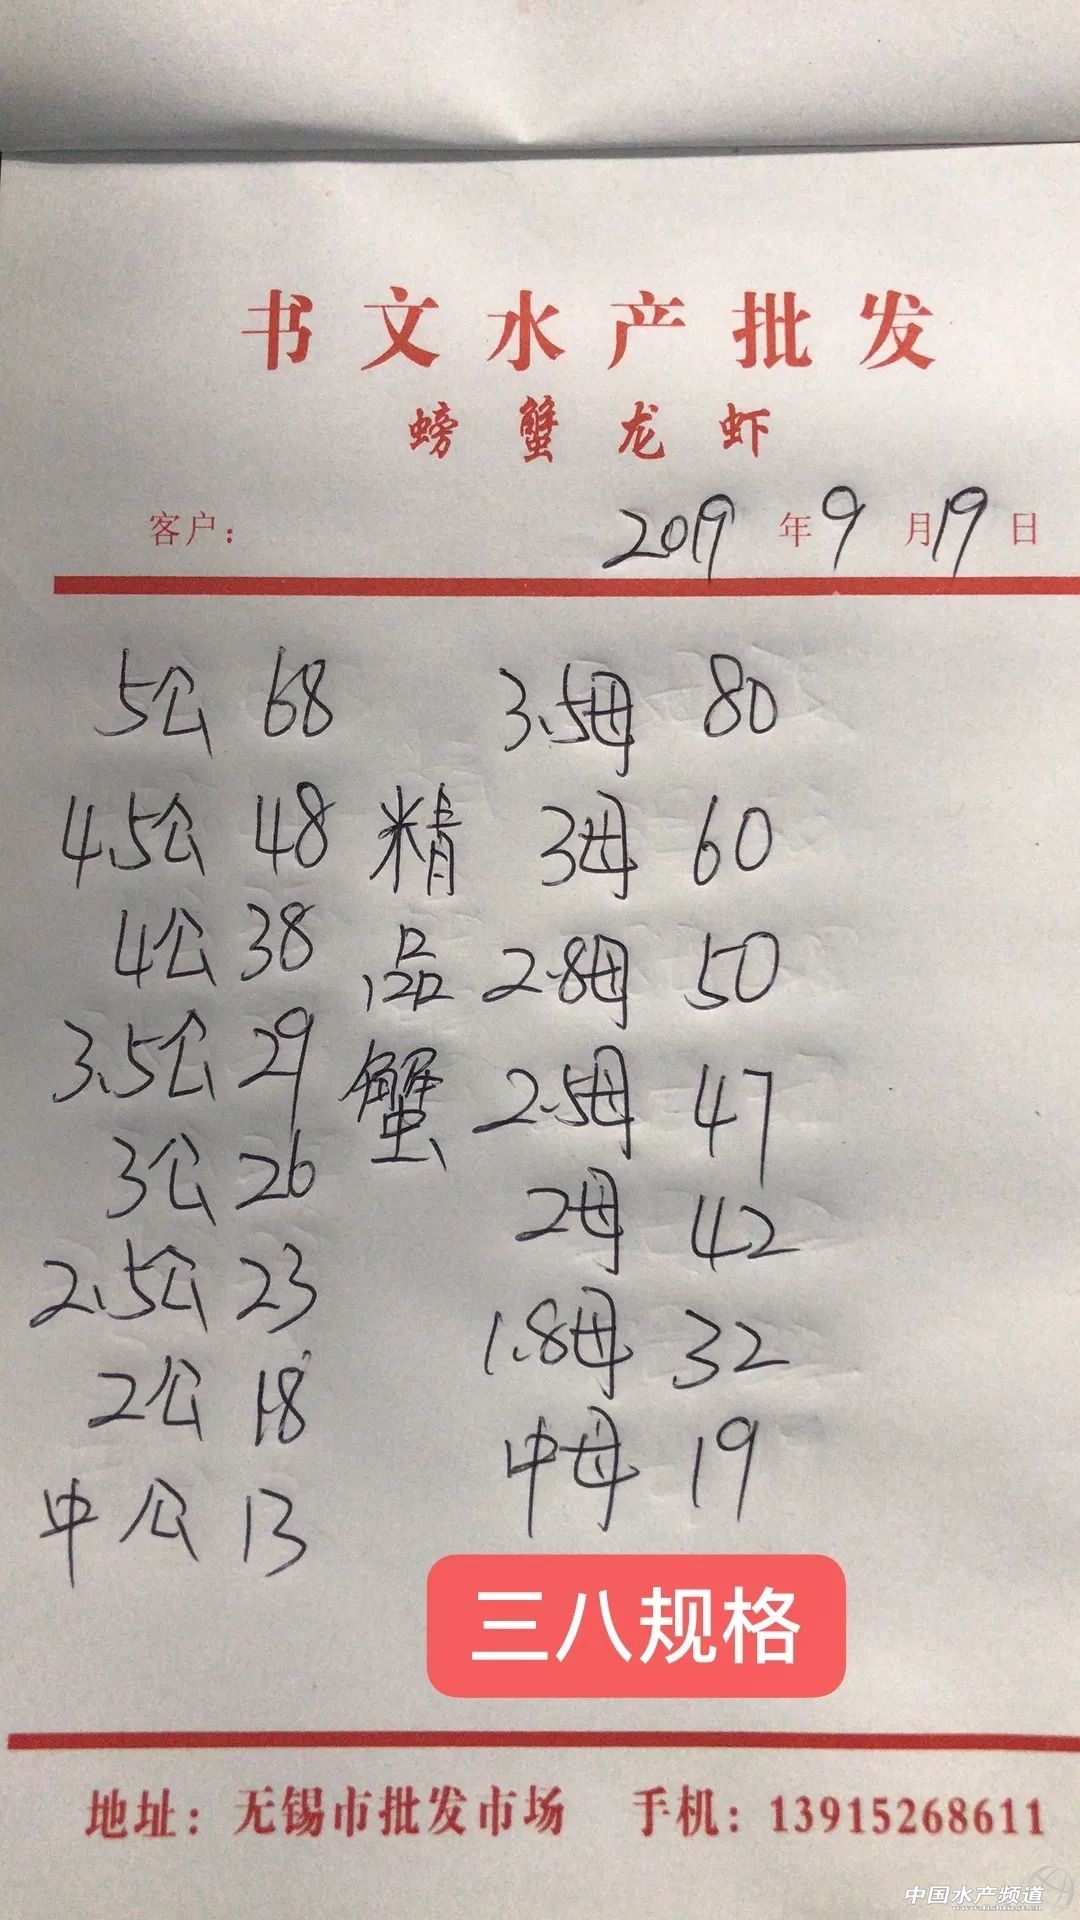 书文水产批发
螃蟹龙虾
客户： 2019年9月19日
5公 68 3.5母 80
4.5公 48 精 3母 60
4公 38 品 2.8母 50
3.5公 29 蟹 2.5母 47
3公 26 2母 42
2.5公 23 1.8母 32
2公 18 中母 19
中公 13
三八规格
地址：无锡市批发市场 手机：13915268611
中国水产频道
www.fishfirst.cn